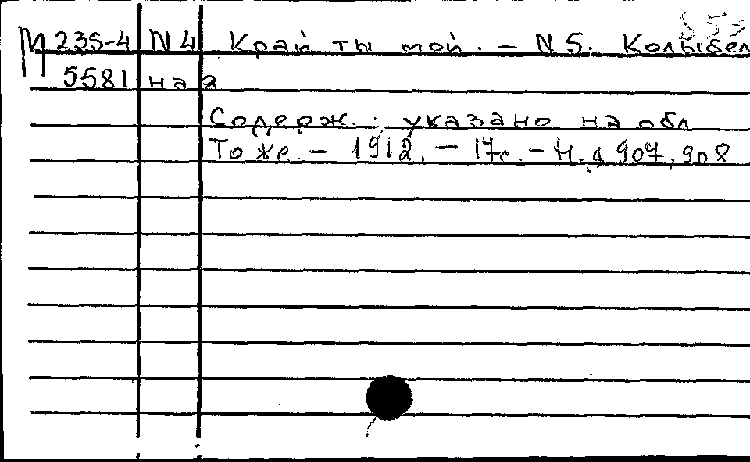 М 235-4 N 4 Край ты мой. - N 5. Колыбел
5581 ная
Содерж.: указано на обл
То же. - 1912. - 17с. - Н.д. 907, 908